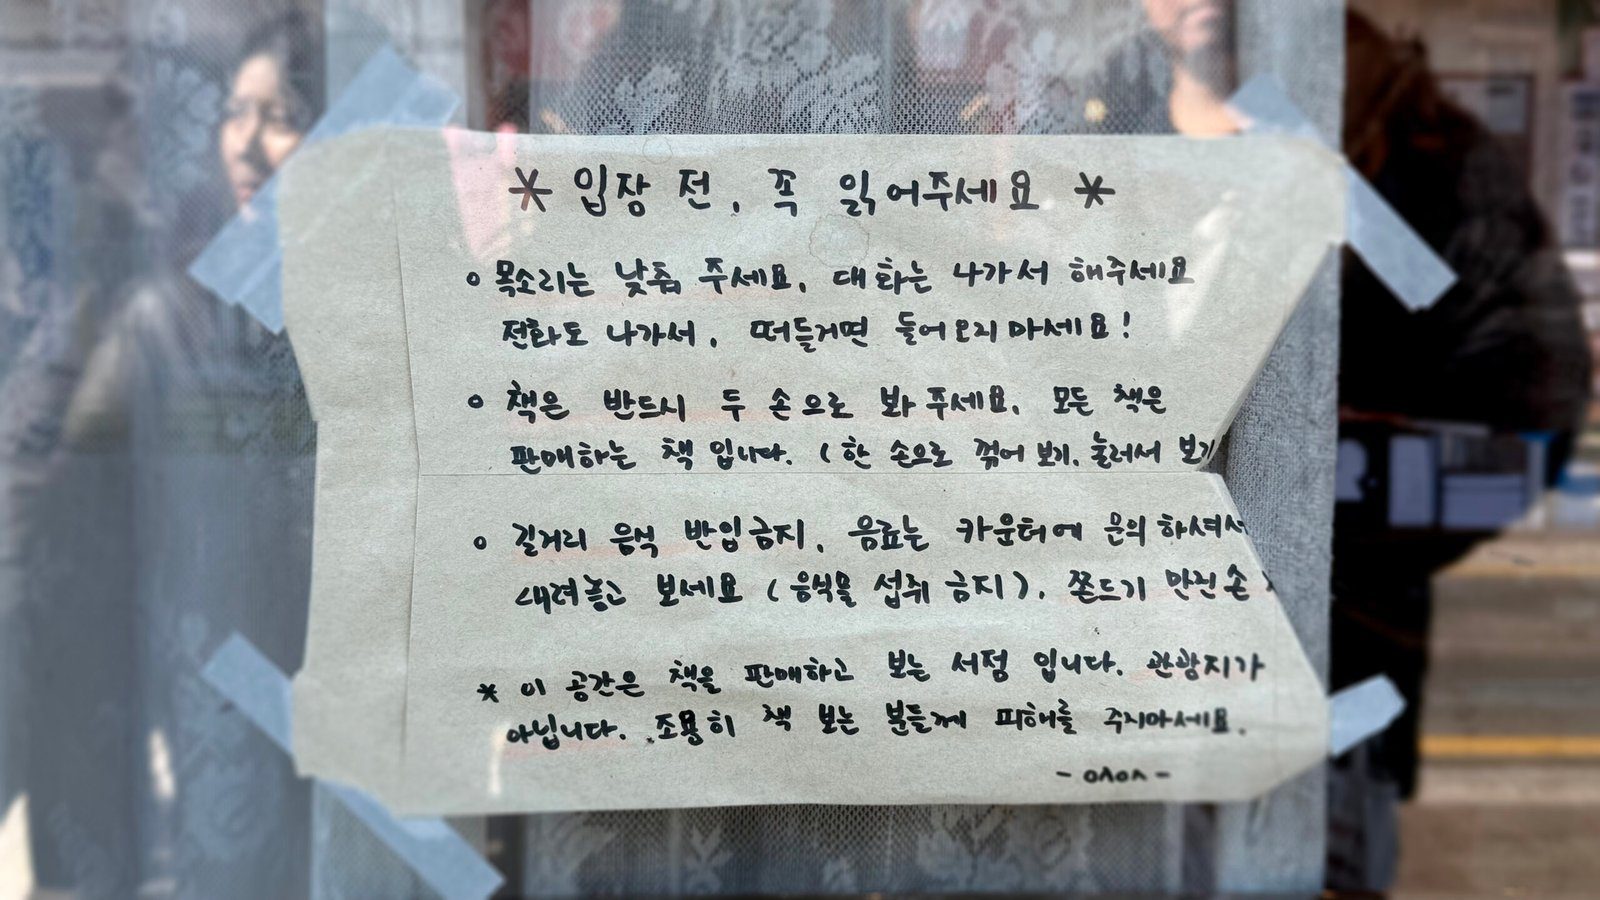 * 입장 전, 꼭 읽어주세요 *
o 목소리는 낮춰 주세요. 대화는 나가서 해주세요
전화도 나가서. 떠들거면 들어오지마세요!
o 책은 반드시 두 손으로 봐 주세요. 모든 책은
판매하는 책 입니다. (한 손으로 꺾어 보기. 눌러서 보기
o 길거리 음식 반입금지. 음료는 카운터에 문의하셔서
내려놓고 보세요 (음식물 섭취 금지). 쫀드기 만진 손
* 이 공간은 책을 판매하고 보는 서점 입니다. 관광지가
아닙니다. 조용히 책 보는 분들께 피해를 주지마세요.
- ㅇㅅㅇㅅ -